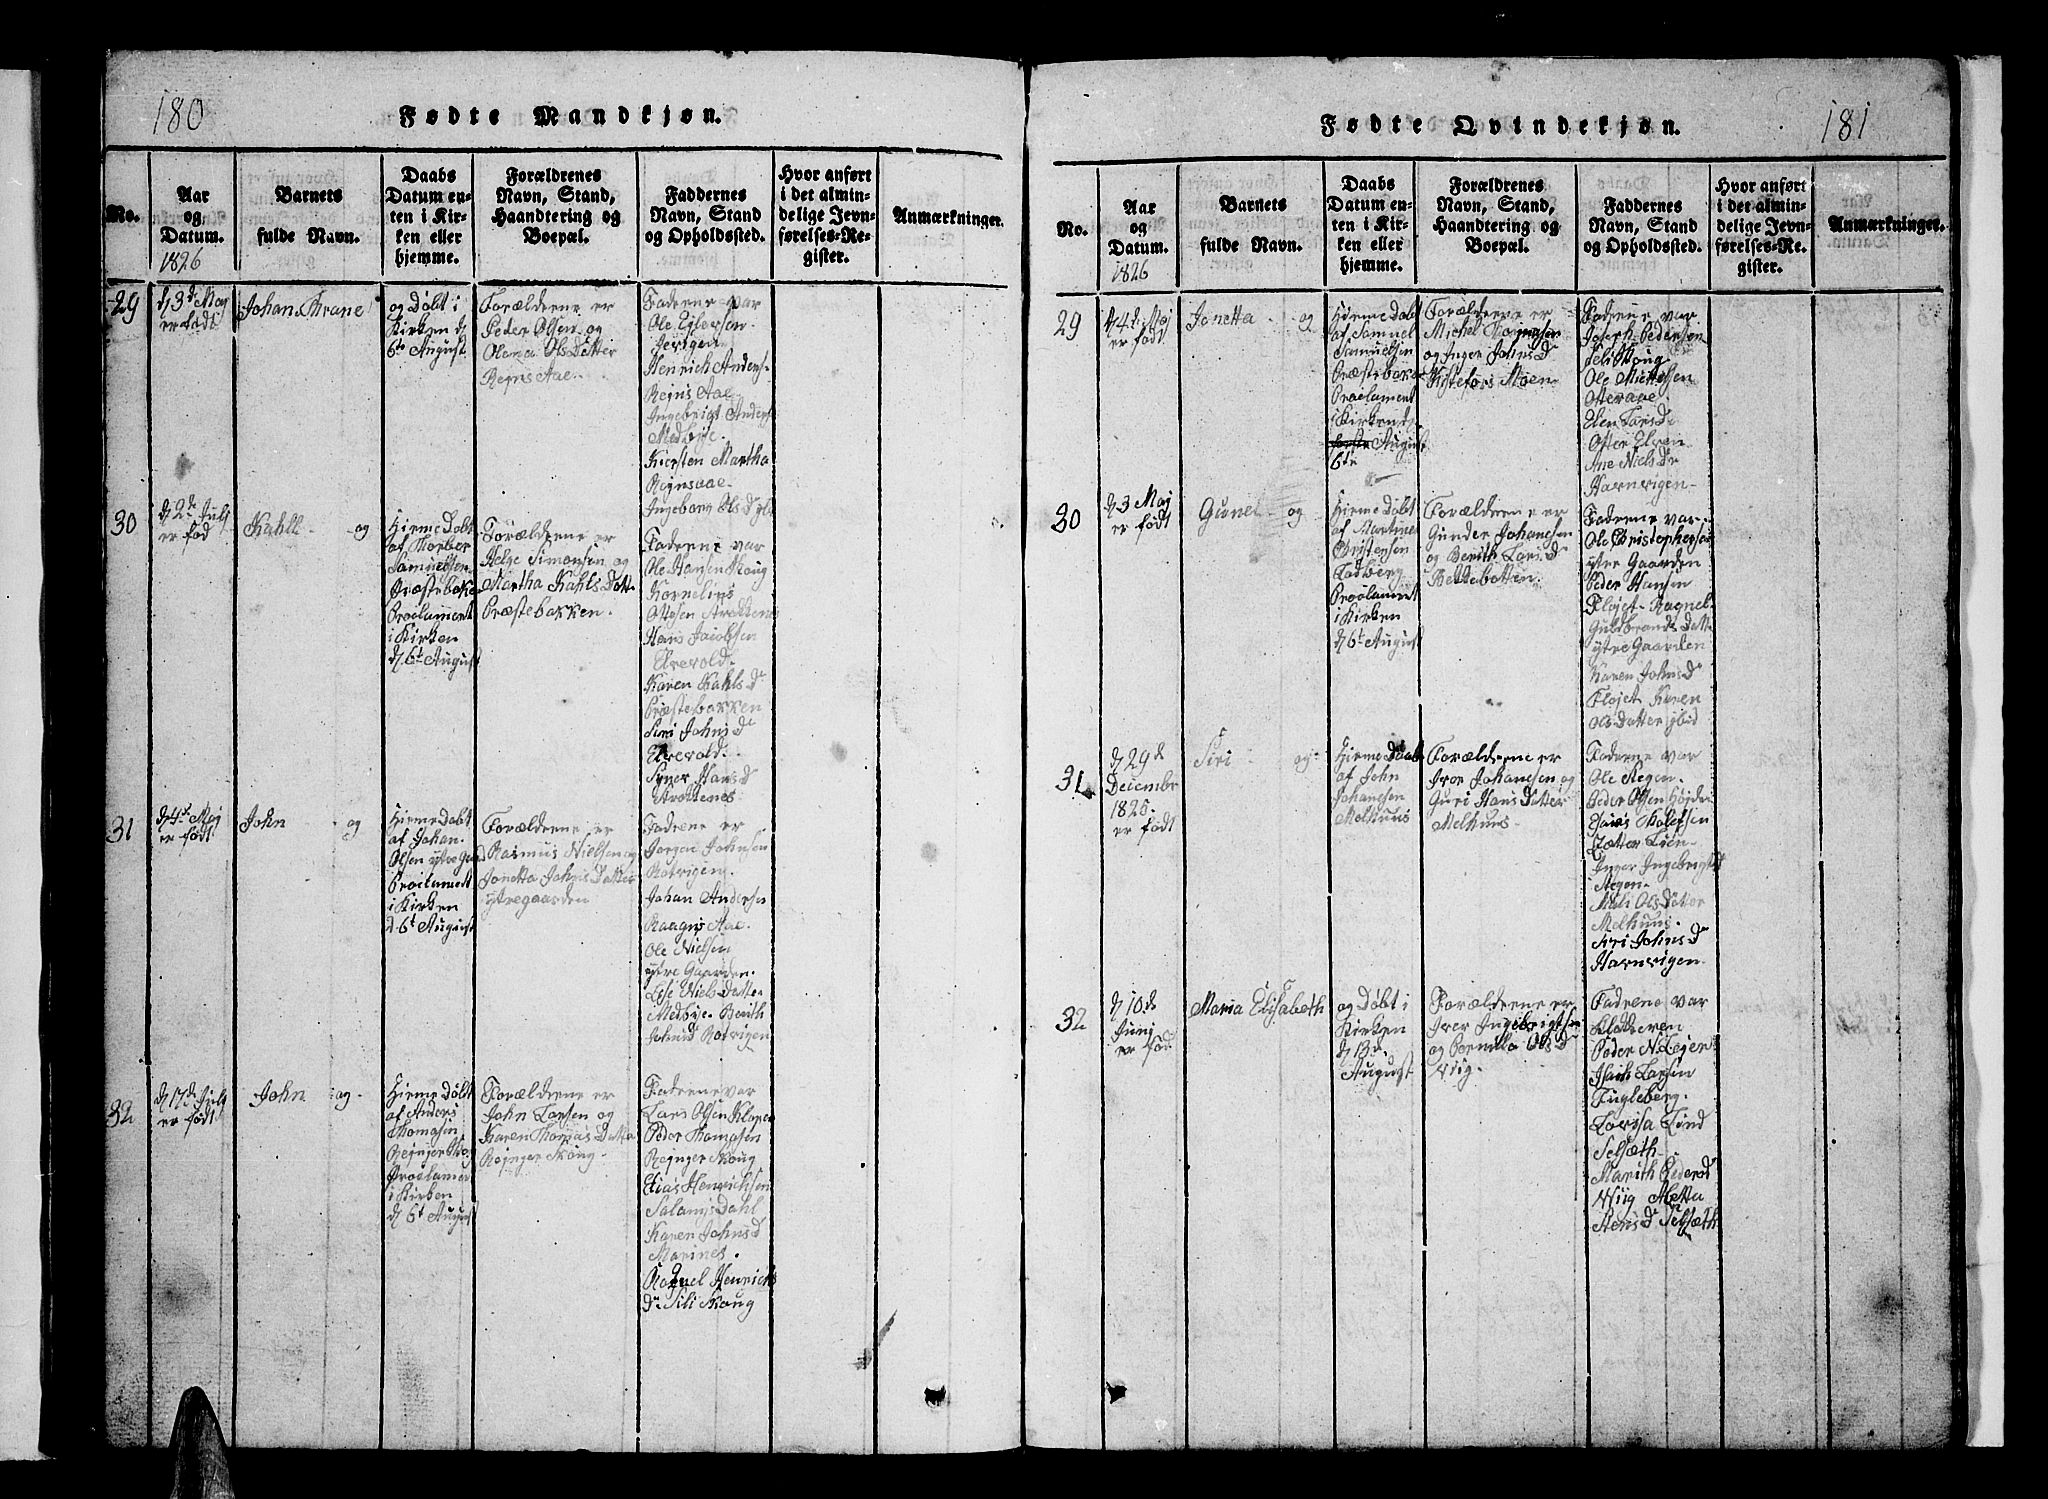 180
Fødte Mandkjøn.
No.
Aar
og
Datum.
1826
Barnets
fulde Navn.
Daabs
Datum en-
ten i Kir-
ken eller
hjemme.
Forældrenes
Navn, Stand,
Haandtering og
Boepæl.
Faddernes
Navn, Stand
og Opholdssted.
Hvor anført
i det almin-
delige Jevn-
førelses-Re-
gister.
Anmærkninger.
29
d 3d Maj
er født
Johan Krane
og Døbt i
Kirken d
6te August
Forældrene er
Peder Olsen og
Olema Ols Datter
Rejns Aae.
Fadrene var
Ole Ejlersen
Henrich Anders-
Rejns Aae
Ingebrigt Anders
Medbye.
Kiersten Martha
Rejnsaae.
Ingeborg Ols D
30
d 2de Julj
er fød
Kahll og
Hieme Døbt
af Thorber
Samuelsen
Præstebake
Proclameret
i Kirken
d 6t August
Forældrene er
Helge Simonsen og
Martha Kahls Datt
Præstebakken.
Fadrene var
Ole Hansen Skoug
Kornelius
Ottesen
Hans Jacobsen
Elvevold.
Karen Kahls Dr
Præstebakken
Siri Johns Dr
Elvevold.
Hans Dr
31
d 4d Maj
er født
John og
Hieme Døbt
af Johan
Olsen ytre Gaard
Proclameret
i Kirken
d. 6t August
Forældrene er
Rasmus Nielsen og
Jonetta Johns Datter
ytregaarden
Fadrene er
Jørgen Johnsen
Rotvigen.
Johan Andersen
Aae.
Ole Nielsen
ytre Gaarden.
Lise Niels Datter
Medbye. Berith
Johns D Rotvigen
32
d 17d Julj
er født
John og
Hieme Døbt
af Anders
Thomasen
Rejnjer Skog
Proclamer
i Kirken
d 6t August
Forældrene er
John Larsen og
Karen Thomas Datter
Rejnger Skoug
Fadrene var
Lars Olsen
Peder Thomasen
Rejnger Skoug
Elias Henrichsen
Salamis Dahl
Karen Johns D
Marines.
Ragnel Henrichs
Dr Sili Skoug
Fødte Qvindekjøn.
181
No.
Aar
og
Datum.
1826
Barnets
fulde Navn.
Daabs
Datum en-
ten i Kir-
ken eller
hjemme.
Forældrenes
Navn, Stand,
Haandtering og
Boepæl.
Faddernes
Navn, Stand
og Opholdssted.
Hvor anført
i det almin-
delige Jevn-
førelses-Re-
gister.
Anmærkninger.
29
d 4d Maj
er født
Jonetta og
Hieme Døbt
af Samuel
Samuelsen
Præstebake
Proclameret
i Kirken d.
August
6te
Forældrene er
Michel
og Inger Johns D
Kistefors Moen
Fadrene var
Joseph Pedersen
Sili Skoug
Ole Michelsen
Osteraae.
Elen Lars D
Ofter Elven
Ane Niels Dr
Havnvigen
30
d 3 Maj
er født
Gunel og
Hieme Døbt
af Martinus
Christensen
Fadberg
Proclameret
i Kirken
d 6t August
Forældrene er
Gunder Johanesen
og Berith Lars D
Bettebotten
Fadrene var
Ole Christophersen
ytre Gaarden
Peder Hansen
Fløjet Ragnel
Guldbrands Datt
ytre Gaarden
Karen Johns D
Fløjet Karen
Ols Datter ibid
31
d 29d
Decembr
1825.
er født
Siri og
Hieme Døbt
af John
Johanesen
Melhuus
Forældrene er
Iver Johanesen og
Guri Hans Datter
Melhuus.
Fadrene var
Ole Stegen.
Peder Olsen
Lien
Inger Ingebrigts D
Stegen
Mali Ols Datter
Melhuus.
Siri Johns D
Havnvigen
32
d 10de
Junj
er fød.
Maria Elisabeth
og Døbt i
Kirken
d 13d.
August
Forældrene er
Iver Ingebrigtsen
og Pernilla Ols D
Wiig.
Fadrene var
Klokkeren
Peder N. Lejer
Isach Larsen
Fugleberg.
Lovisa Lind
Selsæth.
Marith Peders D
Wiig Metta
Stens D Selsæth